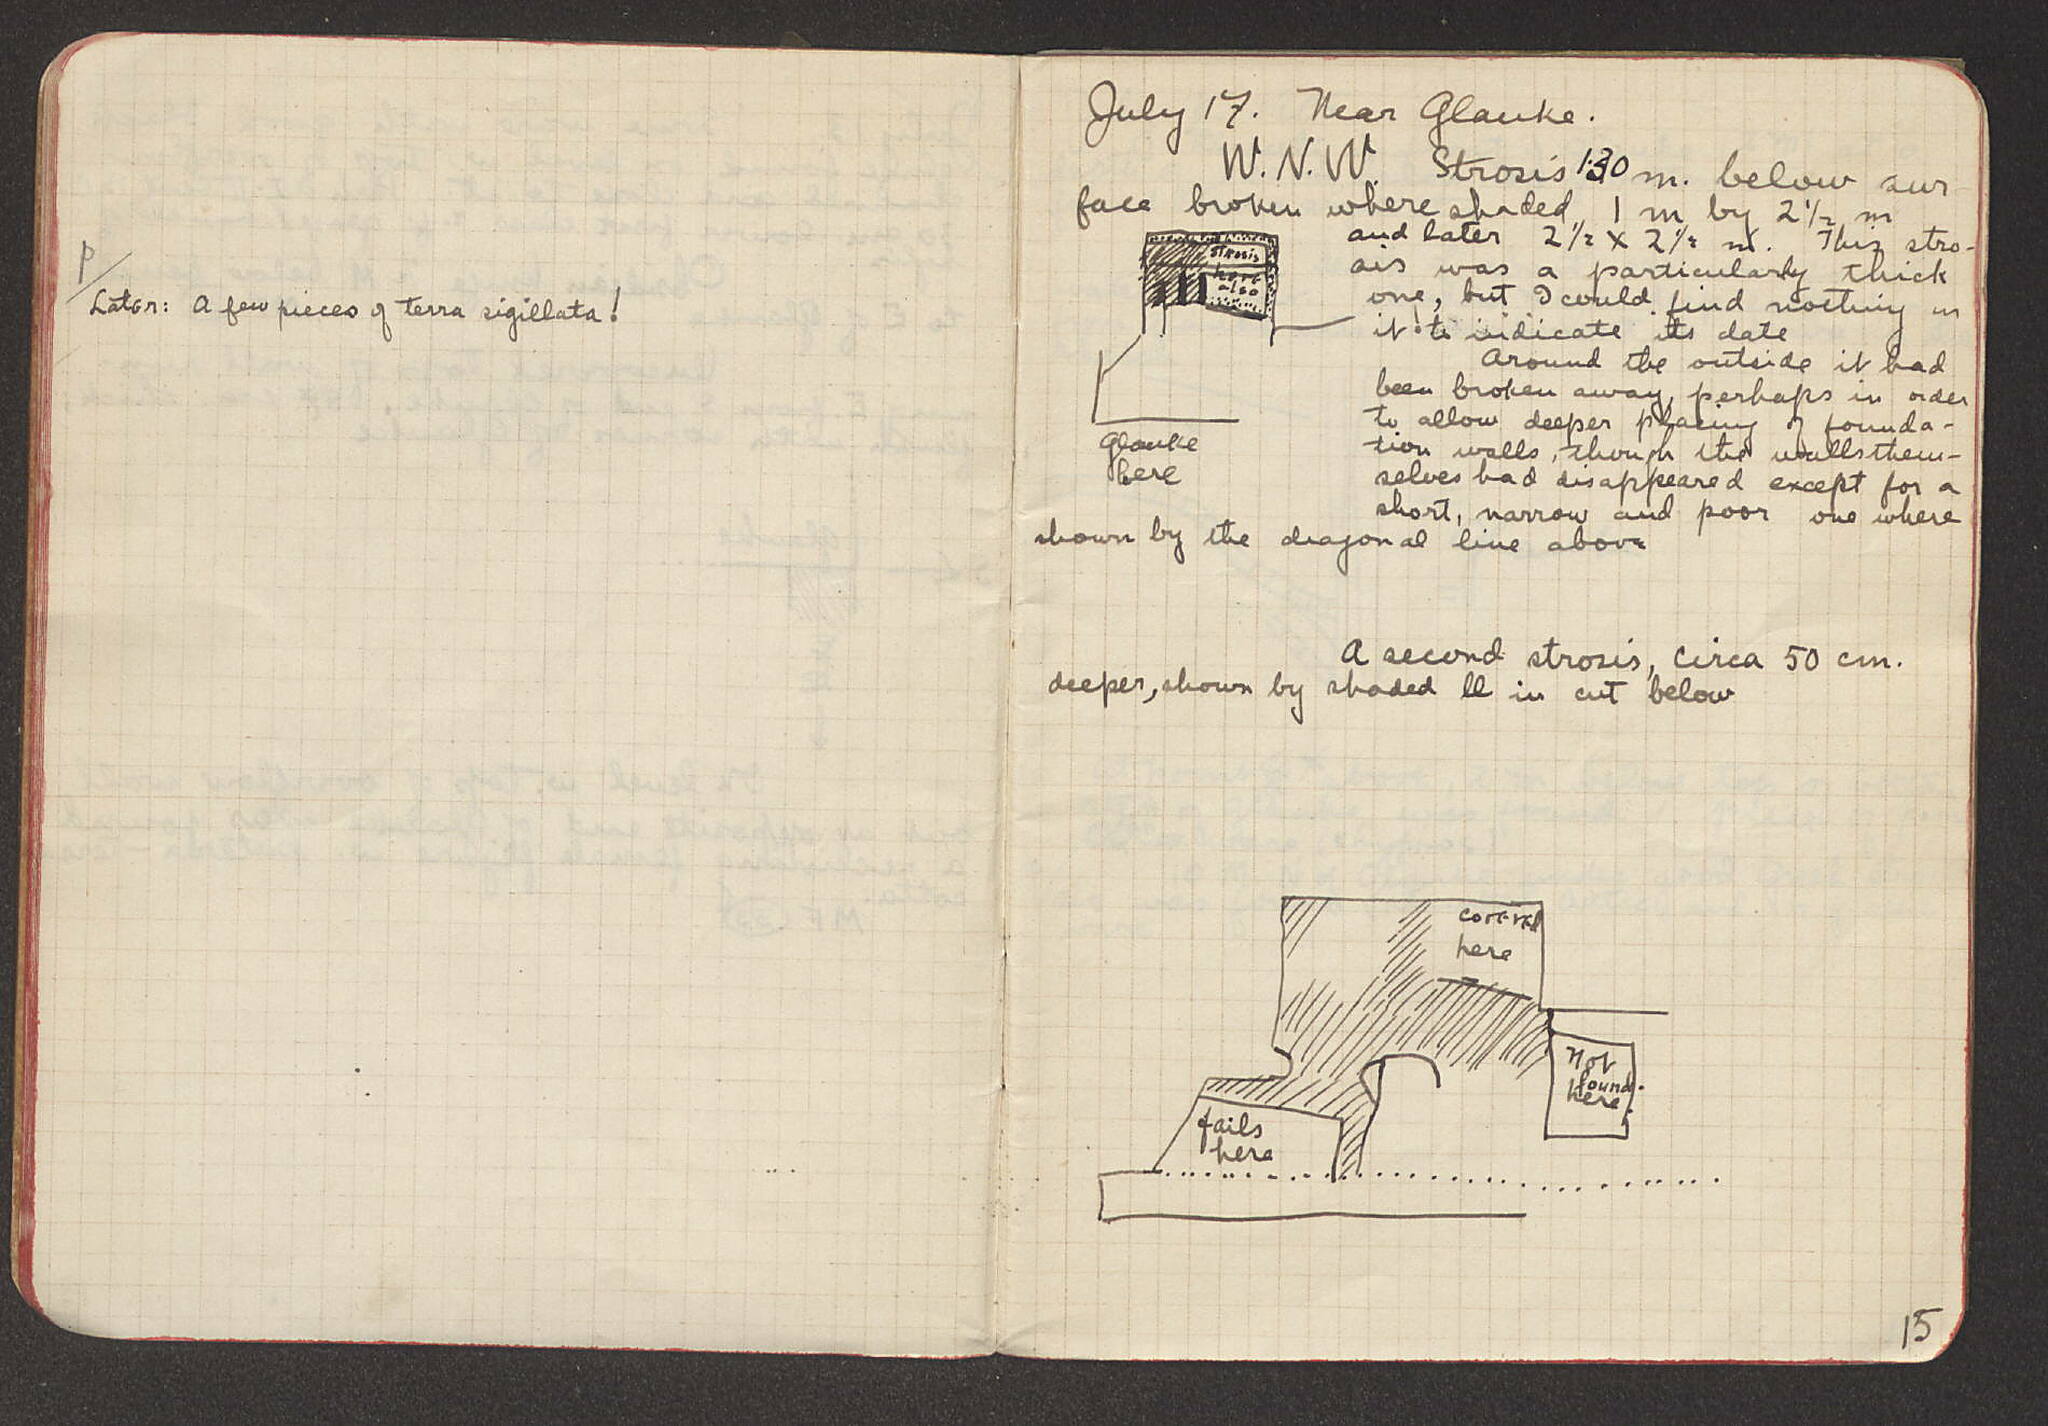 p/
Later: A few pieces of terra sigillata!
July 17. Near Glauke.
W.N.W. Strosis 1.30 m. below sur-
face broken where shaded, 1 m by 2 1/2 m
and later 2 1/2 X 2 1/2 m. This stro-
sis was a particularly thick
one, but I could find nothing in
it to indicate its date
Around the outside it had
been broken away, perhaps in order
to allow deeper placing of founda-
tion walls, though the walls them-
selves had disappeared except for a
short, narrow and poor one where
shown by the diagonal line above
strosis
here
also
Glauke
here
A second strosis, circa 50 cm.
deeper, shown by shaded ll in cut below
covered
here
Not
found
here
fails
here
15